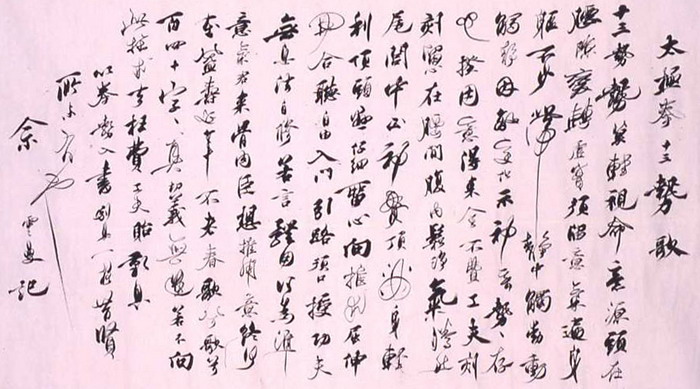 太極拳十三勢歌
十三勢勢莫輕視命意源頭在
腰隙變轉虛實須留意氣遍身
軀不少滯靜中觸動動
觸靜因敵變化示神奇勢、存
心揆用意得來全不費工夫刻
刻留心在腰間腹內鬆淨氣騰然
尾閭中正神貫頂滿身輕
利頂頭懸仔細留心向推求屈伸
開合聽自由入門引路須口授功夫
無息法自修若言體用何為準
意氣君來骨肉臣想推用意終何
在益壽延年不老春歌兮歌兮
百四十字、真切義無遺若不向
此推求去枉費工夫貽歎息
以拳入書別具一格昔賢
所未有也
余記